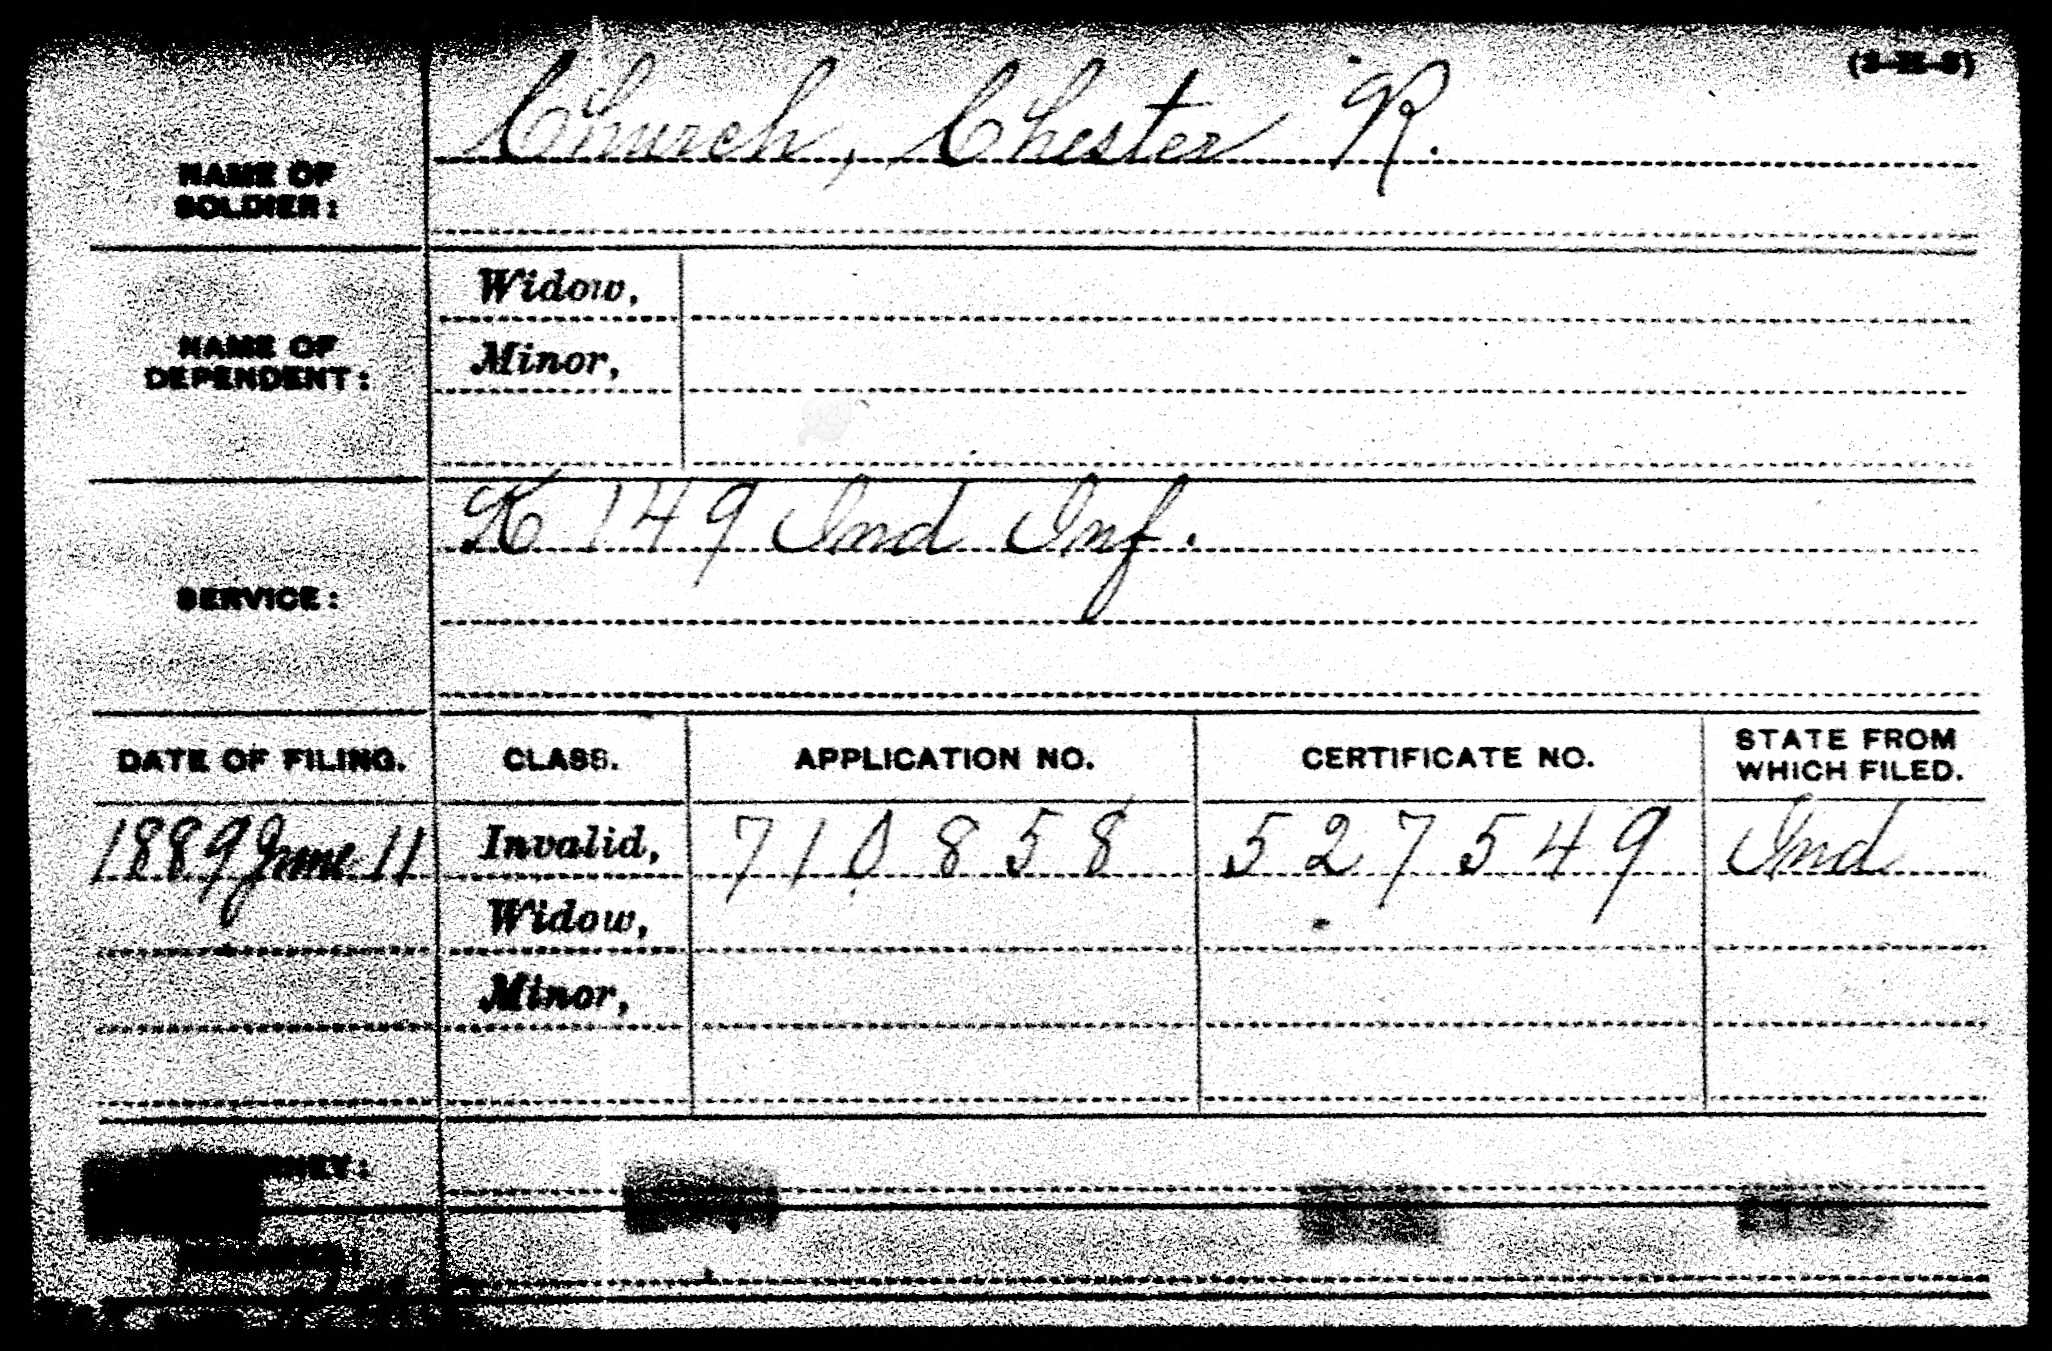 Church, Chester R.
NAME OF
SOLDIER:
Widow,
NAME OF
DEPENDENT:
Minor,
K 149 Ind Inf.
SERVICE:
DATE OF FILING. CLASS. APPLICATION NO. CERTIFICATE NO. STATE FROM WHICH FILED.
1889 June 11 Invalid, 710858 527549 Ind
Widow,
Minor,